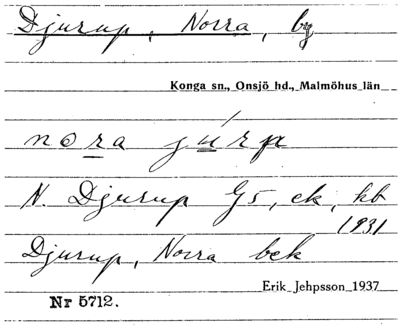 Djurup, Norra, by
Konga sn., Onsjö hd., Malmöhus län
nora júrp
N. Djurup G5, ek, kb
1931
Djurup, Norra bek
Erik Jehpsson 1937
Nr 5712.